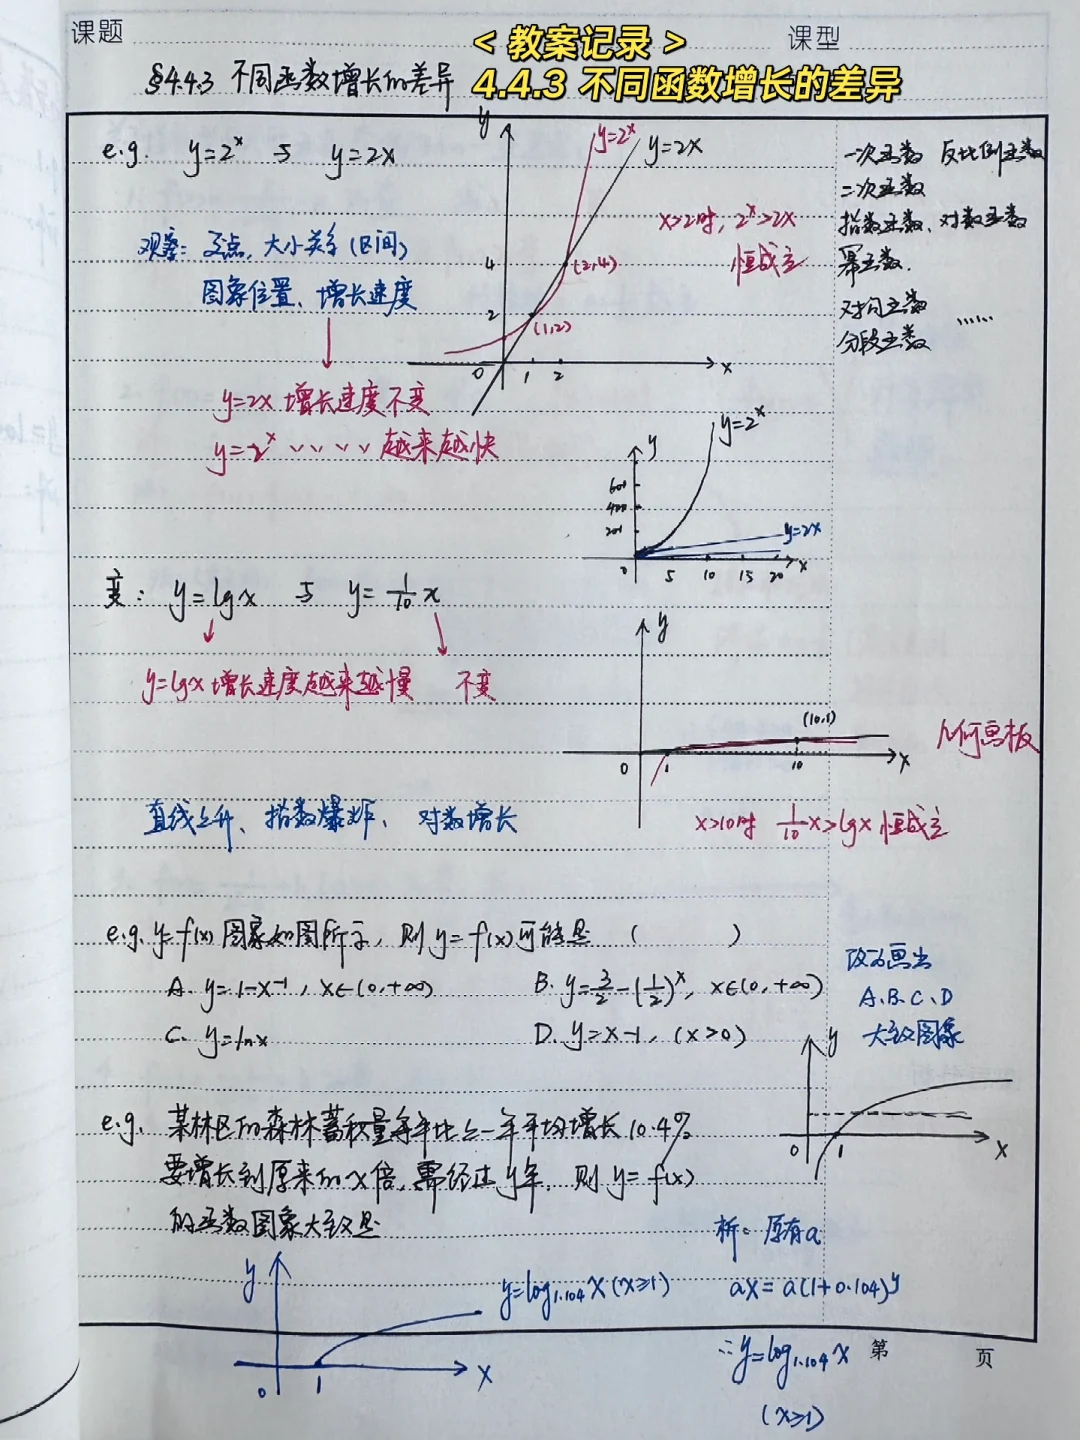 课题
< 教案记录 >
课型
§4.4.3 不同函数增长的差异
4.4.3 不同函数增长的差异
e.g. y=2ˣ 与 y=2x
y
y=2ˣ
y=2x
一次函数 反比例函数
二次函数
指数函数、对数函数
幂函数.
对勾函数
分段函数 ......
x>2时, 2ˣ>2x
恒成立
观察: 交点, 大小关系 (区间)
图象位置、增长速度
4
(2,4)
2
(1,2)
0 1 2 x
y=2x 增长速度不变
y=2ˣ 、、、、越来越快
y
y=2ˣ
600
400
200
y=2x
0 5 10 15 20 x
变: y=lgx 与 y=1/10 x
y=lgx 增长速度越来越慢 不变
y
(10,1)
0 1 10 x
几何画板
x>10时 1/10 x>lgx 恒成立
直线上升、指数爆炸、对数增长
e.g. y=f(x) 图象如图所示, 则 y=f(x) 可能是 ( )
A. y=1-x⁻¹, x∈(0,+∞) B. y=3/2-(1/2)ˣ, x∈(0,+∞)
C. y=lnx D. y=x-1, (x>0)
画出
A、B、C、D
大致图象
y
0 1 x
e.g. 某林区的森林蓄积量每年比上一年平均增长10.4%
要增长到原来的x倍, 需经过y年, 则 y=f(x)
的函数图象大致是
析: 原有a
ax=a(1+0.104)ʸ
∴y=log₁.₁₀₄x
(x≥1)
y
y=log₁.₁₀₄x (x≥1)
0 1 x
第 页